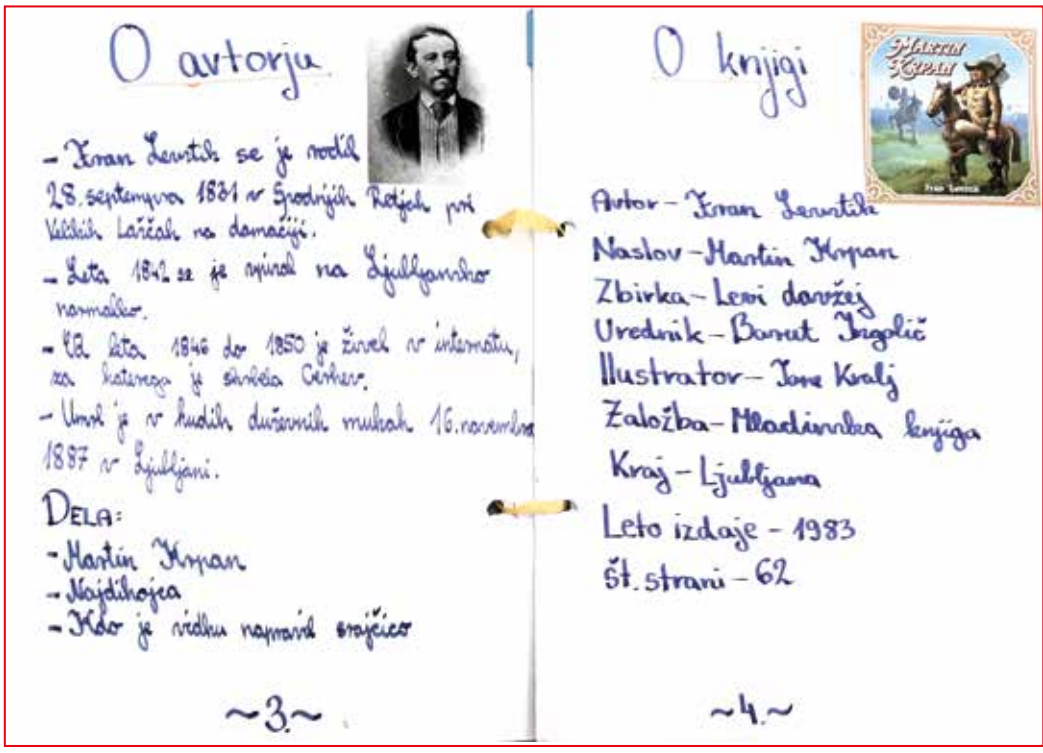 O avtorju
- Fran Levstik se je rodil
28. septembra 1831 v Spodnjih Retjah pri
Velikih Laščah na domačiji.
- Leta 1842 se je vpisal na Ljubljansko
normalko.
- Od leta 1846 do 1850 je živel v internatu,
za katerega je skrbela Cerkev.
- Umrl je v hudih duševnih mukah 16. novembra
1887 v Ljubljani.
DELA:
- Martin Krpan
- Najdihojca
- Kdo je vidku napravil srajčico
~3.~
O knjigi
MARTIN
KRPAN
Fran Levstik
Avtor - Fran Levstik
Naslov - Martin Krpan
Zbirka - Levi devžej
Urednik - Borut Ingolič
Ilustrator - Tone Kralj
Založba - Mladinska knjiga
Kraj - Ljubljana
Leto izdaje - 1983
Št. strani - 62
~4.~